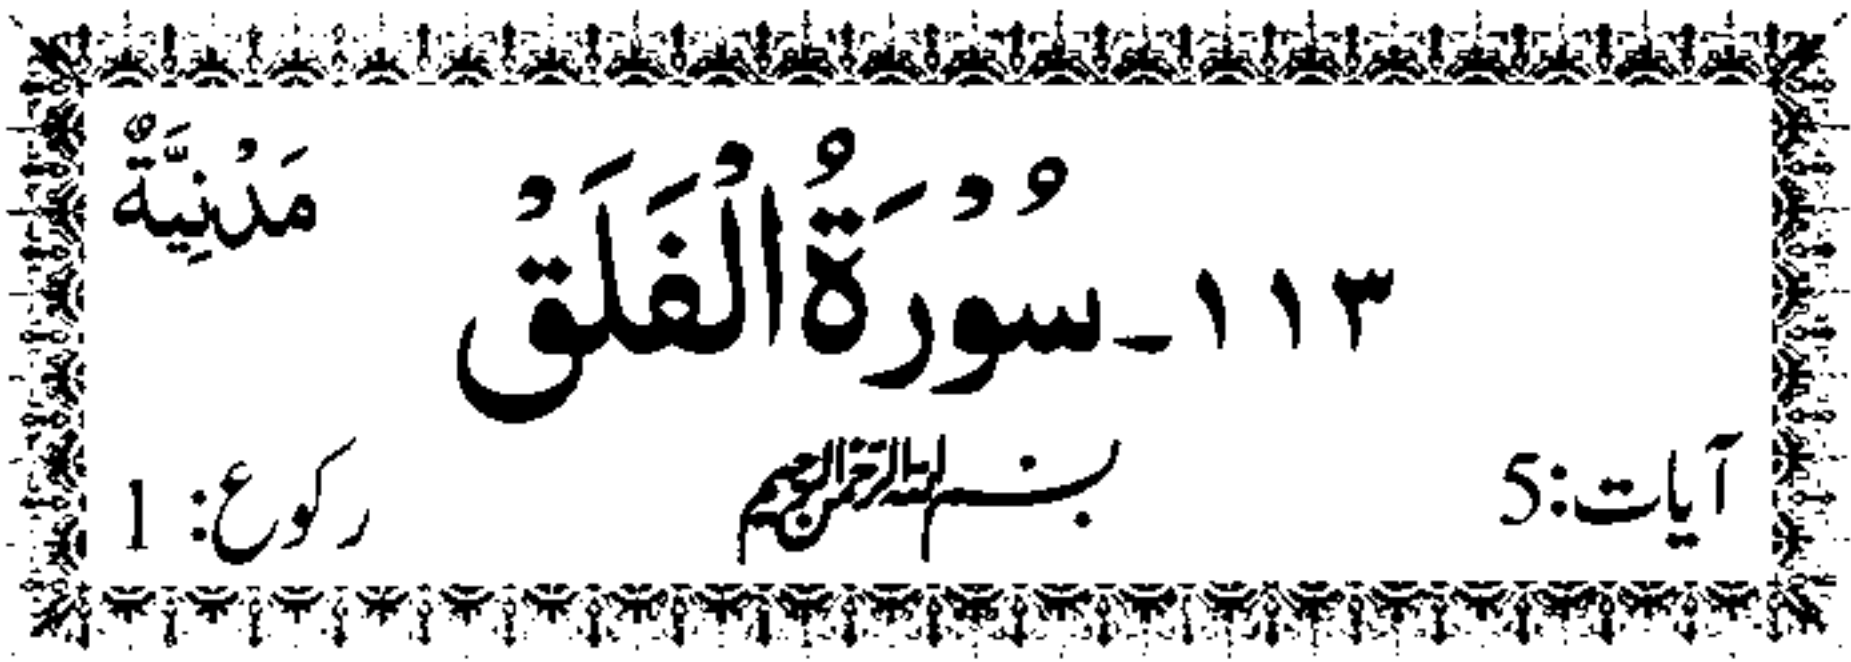 مَدْنِيَّةٌ
١١٣ - سُوْرَةُ الْفَلَقْ
آیات: 5 بسم الله الرحمن الرحيم رکوع: 1